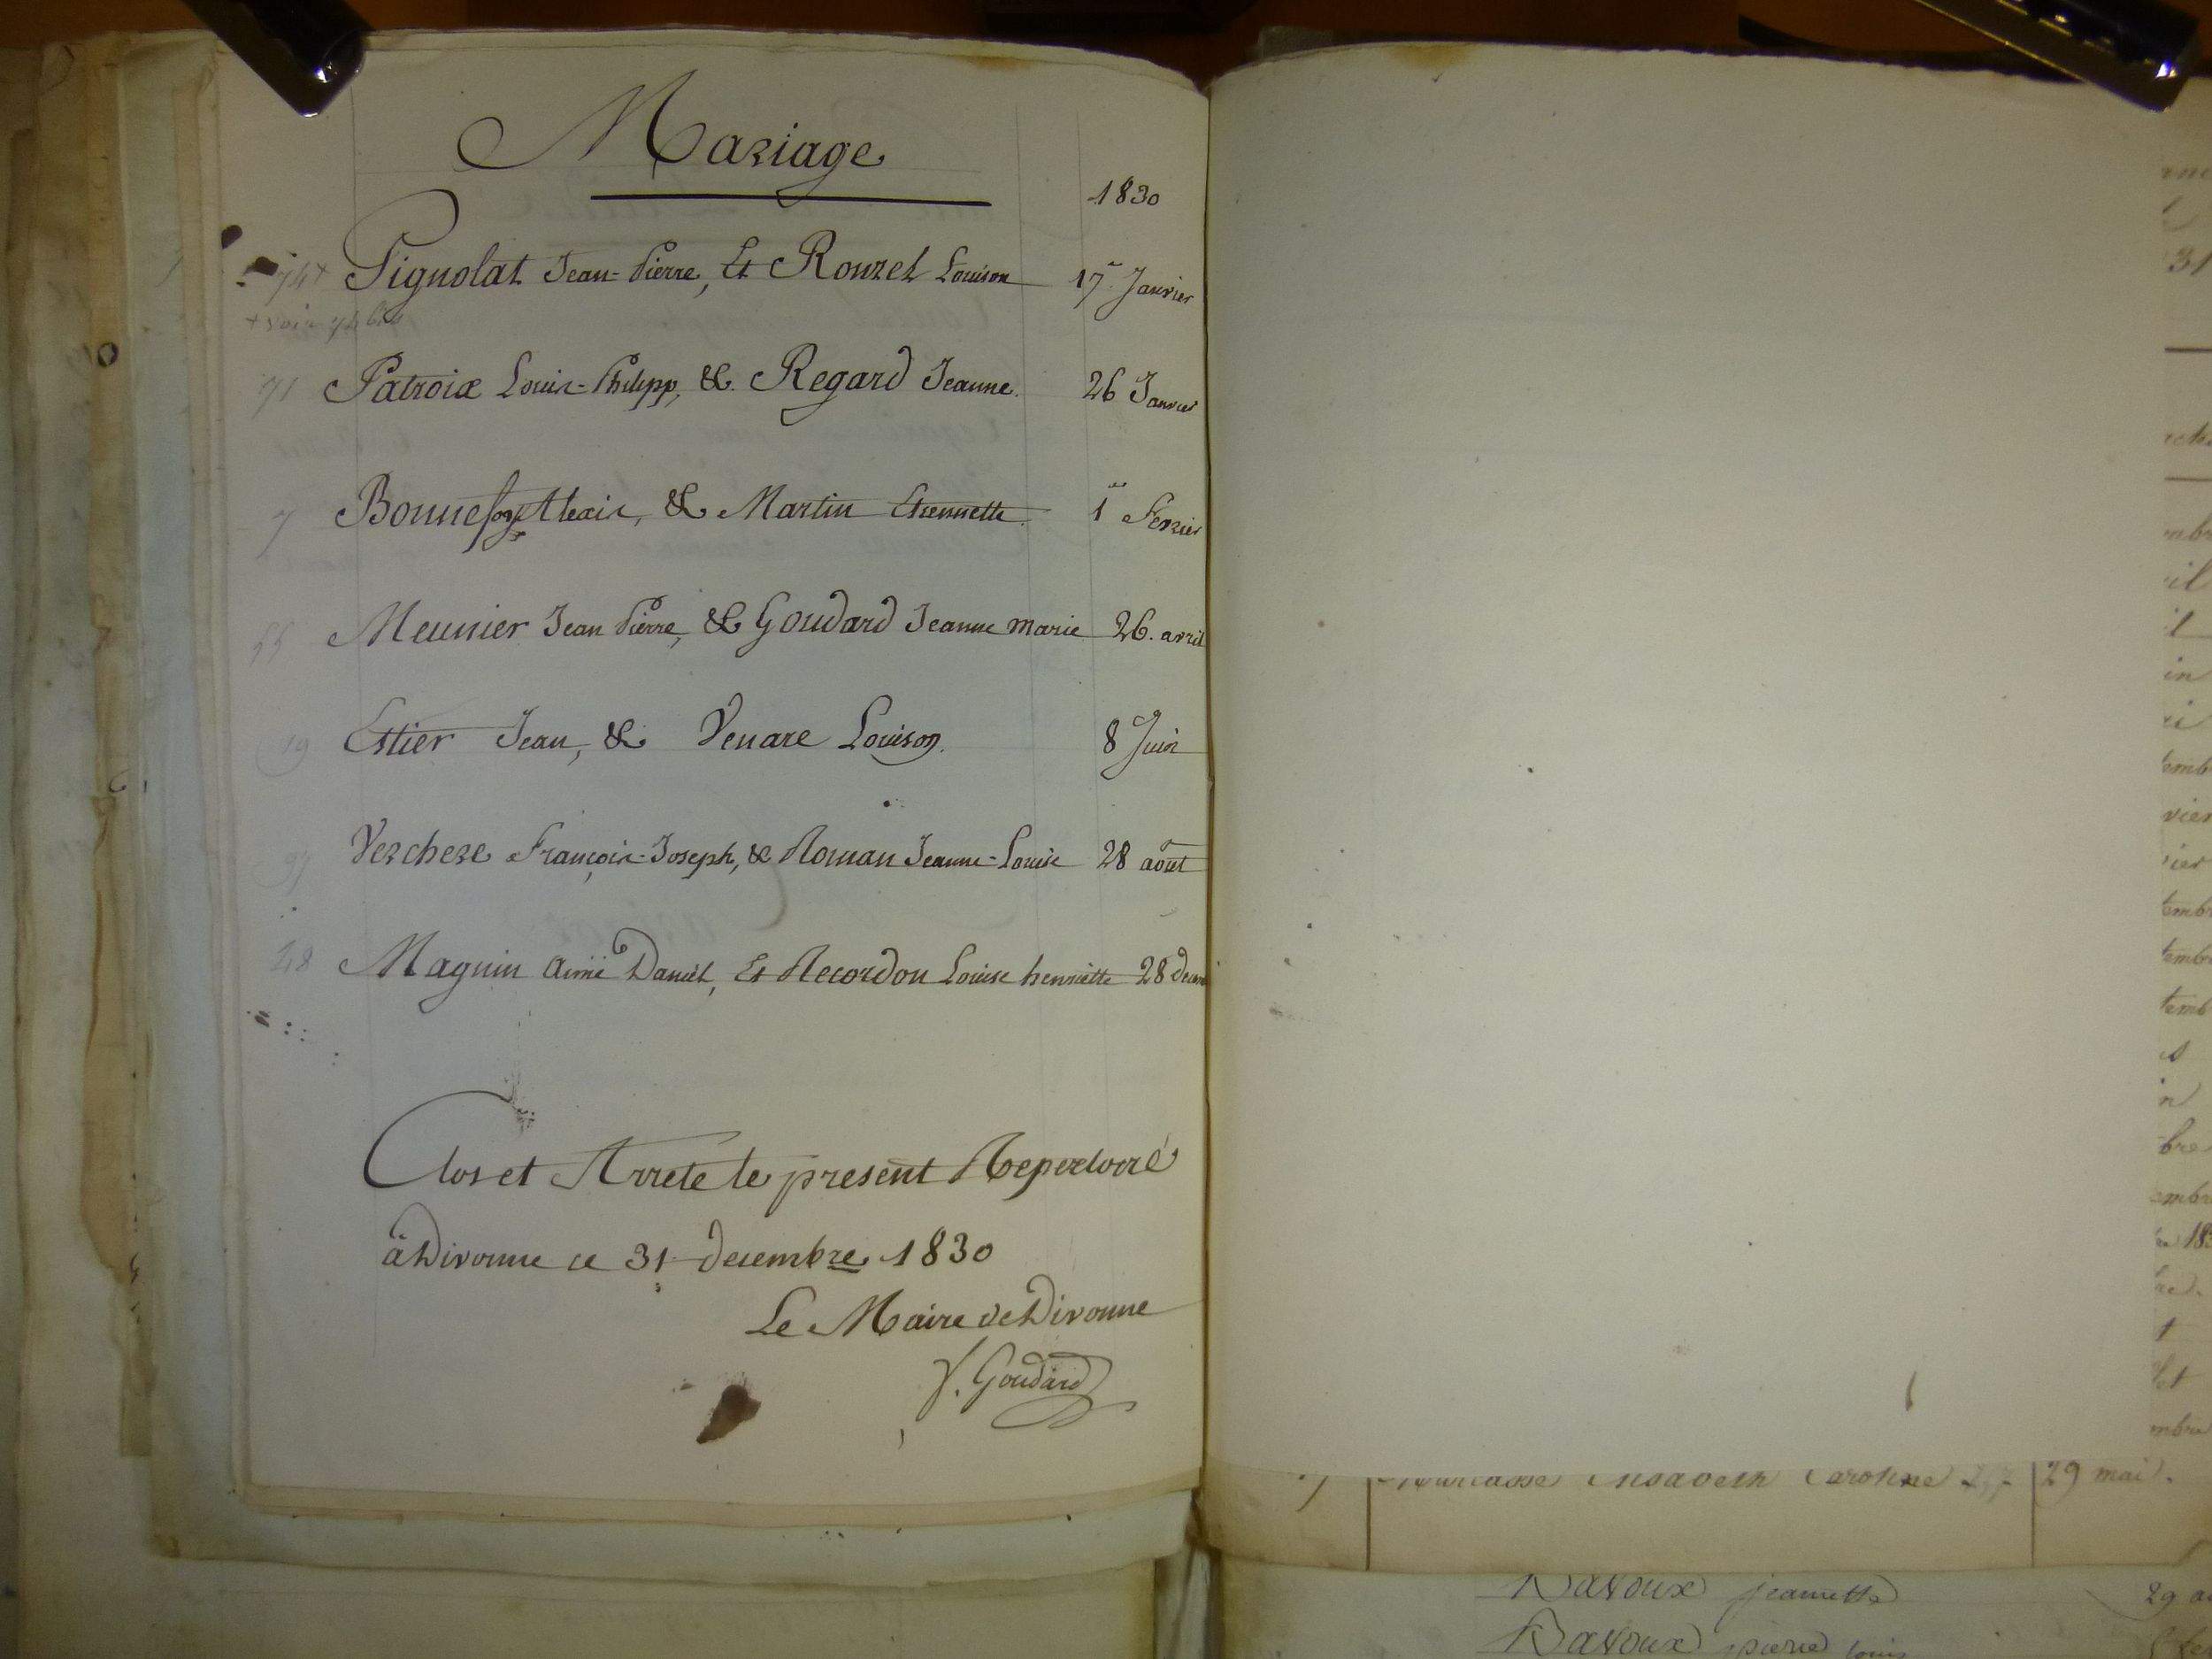 Mariage
1830
74+ Pignolat Jean-Pierre, Et Rouzet Louison 17 Janvier
+ voir 74 bis
71 Patroix Louis-Philipp, & Regard Jeanne. 26 Janvier
7 Bonnefoy Alexis, & Martin Etiennette 1er Fevrier
55 Meunier Jean Pierre, & Goudard Jeanne marie 26. avril
19 Estier Jean, & Venare Louison. 8 Juin
97 Verchere François-Joseph, & Roman Jeanne-Louise 28 août
48 Magnin aimé Daniel, Et Recordon Louise henriette 28 Decem
Clos et Arreté le present Repertoire
à Divonne ce 31 decembre 1830
Le Maire de Divonne
Goudard
Caroline 29 mai.
Davoux jeannette 29
Davoux pierre louis